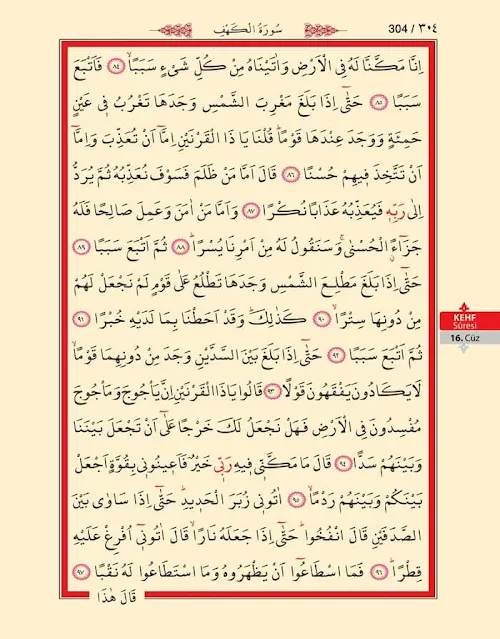 304 / ٣٠٤
سُورَةُ الْكَهْفِ
اِنَّا مَكَّنَّا لَهُ فِى الْاَرْضِ وَاٰتَيْنَاهُ مِنْ كُلِّ شَىْءٍ سَبَبًاۙ ﴿٨٤﴾ فَاَتْبَعَ
سَبَبًا ﴿٨٥﴾ حَتّٰٓى اِذَا بَلَغَ مَغْرِبَ الشَّمْسِ وَجَدَهَا تَغْرُبُ فٖى عَيْنٍ
حَمِئَةٍ وَوَجَدَ عِنْدَهَا قَوْمًاؕ قُلْنَا يَا ذَا الْقَرْنَيْنِ اِمَّٓا اَنْ تُعَذِّبَ وَاِمَّٓا
اَنْ تَتَّخِذَ فٖيهِمْ حُسْنًا ﴿٨٦﴾ قَالَ اَمَّا مَنْ ظَلَمَ فَسَوْفَ نُعَذِّبُهُ ثُمَّ يُرَدُّ
اِلٰى رَبِّهٖ فَيُعَذِّبُهُ عَذَابًا نُكْرًا ﴿٨٧﴾ وَاَمَّا مَنْ اٰمَنَ وَعَمِلَ صَالِحًا فَلَهُ
جَزَٓاءًۨ الْحُسْنٰىۚ وَسَنَقُولُ لَهُ مِنْ اَمْرِنَا يُسْرًاؕ ﴿٨٨﴾ ثُمَّ اَتْبَعَ سَبَبًا ﴿٨٩﴾
حَتّٰٓى اِذَا بَلَغَ مَطْلِعَ الشَّمْسِ وَجَدَهَا تَطْلُعُ عَلٰى قَوْمٍ لَمْ نَجْعَلْ لَهُمْ
مِنْ دُونِهَا سِتْرًاۙ ﴿٩٠﴾ كَذٰلِكَؕ وَقَدْ اَحَطْنَا بِمَا لَدَيْهِ خُبْرًا ﴿٩١﴾
ثُمَّ اَتْبَعَ سَبَبًا ﴿٩٢﴾ حَتّٰٓى اِذَا بَلَغَ بَيْنَ السَّدَّيْنِ وَجَدَ مِنْ دُونِهِمَا قَوْمًاۙ
لَا يَكَادُونَ يَفْقَهُونَ قَوْلًا ﴿٩٣﴾ قَالُوا يَا ذَا الْقَرْنَيْنِ اِنَّ يَاْجُوجَ وَمَاْجُوجَ
مُفْسِدُونَ فِى الْاَرْضِ فَهَلْ نَجْعَلُ لَكَ خَرْجًا عَلٰٓى اَنْ تَجْعَلَ بَيْنَنَا
وَبَيْنَهُمْ سَدًّا ﴿٩٤﴾ قَالَ مَا مَكَّنّٖى فٖيهِ رَبّٖى خَيْرٌ فَاَعٖينُونٖى بِقُوَّةٍ اَجْعَلْ
بَيْنَكُمْ وَبَيْنَهُمْ رَدْمًاۙ ﴿٩٥﴾ اٰتُونٖى زُبَرَ الْحَدٖيدِؕ حَتّٰٓى اِذَا سَاوٰى بَيْنَ
الصَّدَفَيْنِ قَالَ انْفُخُواؕ حَتّٰٓى اِذَا جَعَلَهُ نَارًاۙ قَالَ اٰتُونٖٓى اُفْرِغْ عَلَيْهِ
قِطْرًاؕ ﴿٩٦﴾ فَمَا اسْطَاعُٓوا اَنْ يَظْهَرُوهُ وَمَا اسْتَطَاعُوا لَهُ نَقْبًا ﴿٩٧﴾
قَالَ هٰذَا
KEHF
Sûresi
16. Cüz